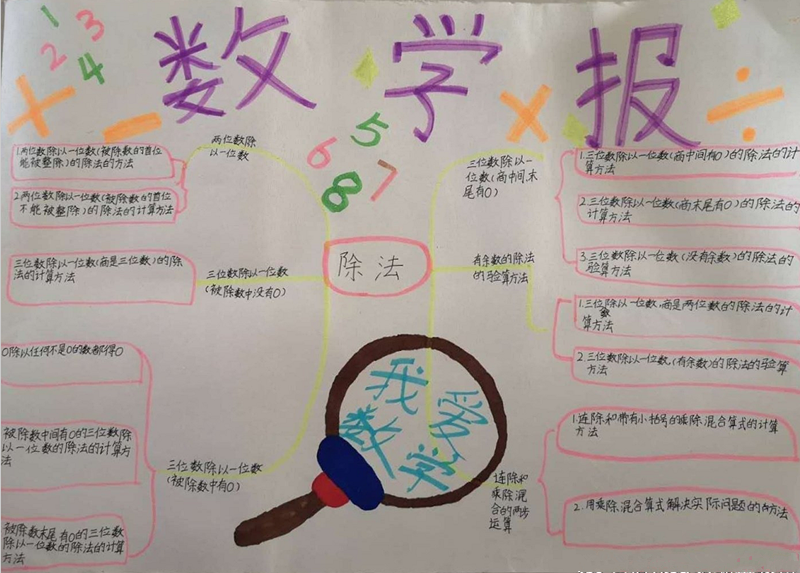 数学报
1
2
3
4
5
6
7
8
除法
两位数除
以一位数
1.两位数除以一位数(被除数的首位
能被整除)的除法的方法
2.两位数除以一位数(被除数的首位
不能被整除)的除法的计算方法
三位数除以一位数
(被除数中没有0)
三位数除以一位数(商是三位数)的除
法的计算方法
三位数除以一位数
(被除数中有0)
0除以任何不是0的数都得0
被除数中间有0的三位数除
以一位数的除法的计算方
法
被除数末尾有0的三位数
除以一位数的除法的计算
方法
三位数除以一
位数(商中间,末
尾有0)
1.三位数除以一位数(商中间有0)的除法的计
算方法
2.三位数除以一位数(商末尾有0)的除法的
计算方法
有余数的除法
的验算方法
3.三位数除以一位数(没有余数)的除法的
验算方法
1.三位除以一位数,商是两位数的除法的计
数
算方法
2.三位数除以一位数,(有余数)的除法的验算
方法
连除和
乘除混
合的两步
运算
1.连除和带有小括号的乘除混合算式的计算
方法
2.用乘除混合算式解决实际问题的方法
我爱
数学